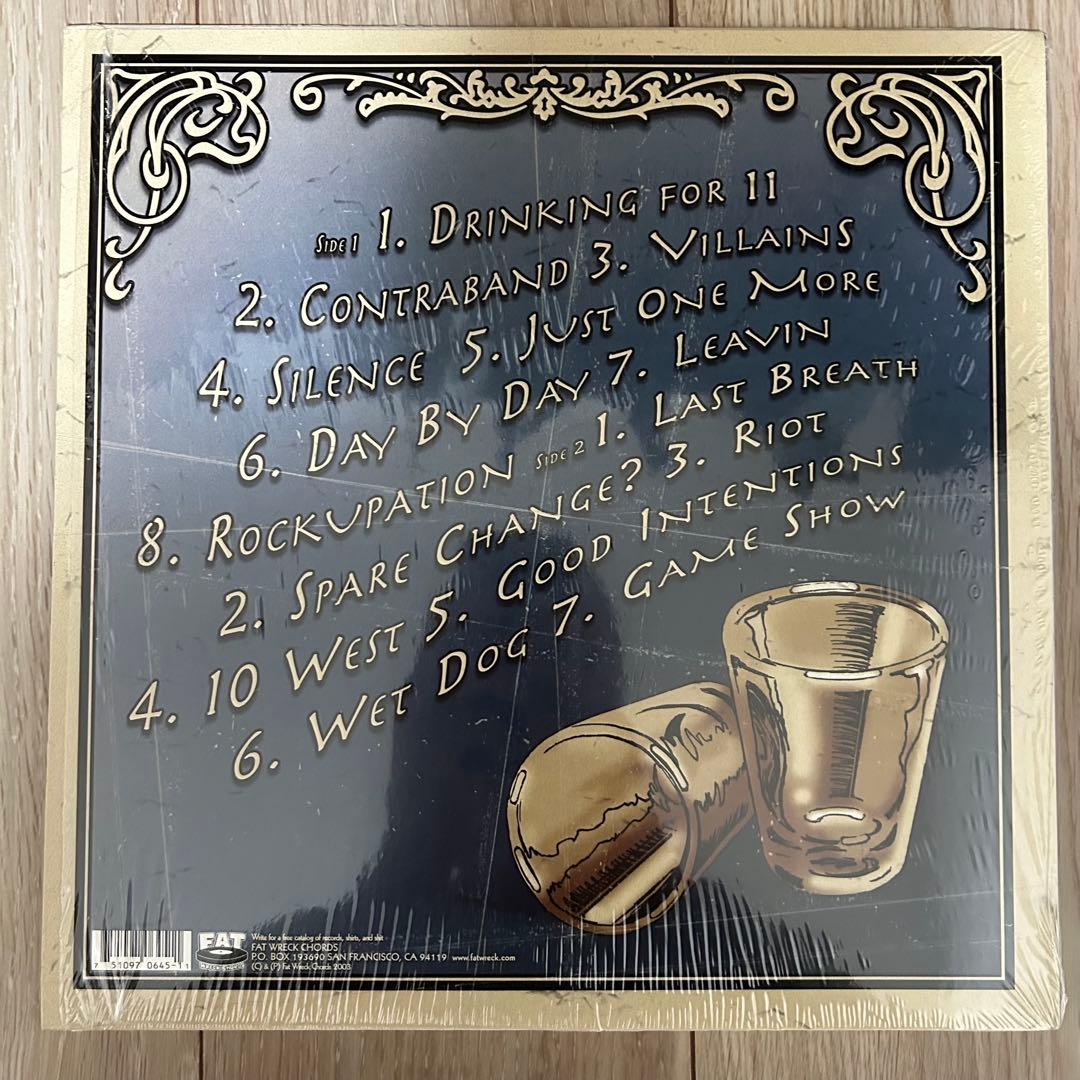 SIDE 1 1. DRINKING FOR 11
2. CONTRABAND 3. VILLAINS
4. SILENCE 5. JUST ONE MORE
6. DAY BY DAY 7. LEAVIN
8. ROCKUPATION SIDE 2 1. LAST BREATH
2. SPARE CHANGE? 3. RIOT
4. 10 WEST 5. GOOD INTENTIONS
6. WET DOG 7. GAME SHOW
7 51097 0645-11
FAT
WRECK CHORDS
Write for a free catalog of records, shirts, and shit
FAT WRECK CHORDS
P.O. BOX 193690 SAN FRANCISCO, CA 94119 www.fatwreck.com
(C) & (P) Fat Wreck Chords 2003